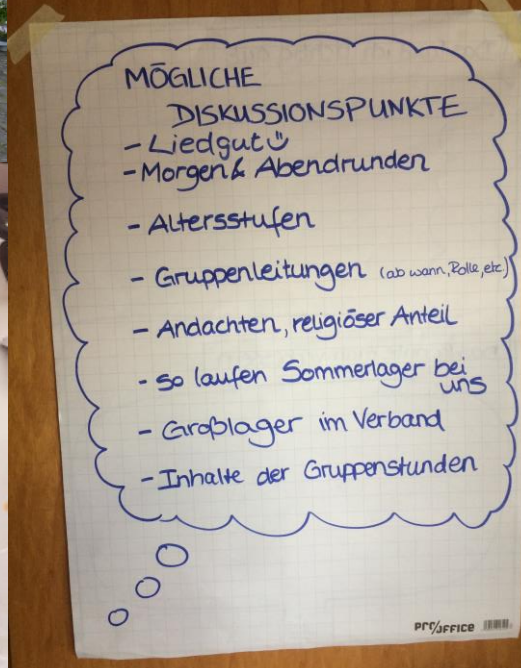 MÖGLICHE
DISKUSSIONSPUNKTE
- Liedgut
- Morgen & Abendrunden
- Altersstufen
- Gruppenleitungen (ab wann, Rolle, etc.)
- Andachten, religiöser Anteil
- so laufen Sommerlager bei
uns
- Großlager im Verband
- Inhalte der Gruppenstunden
PRO/OFFICE